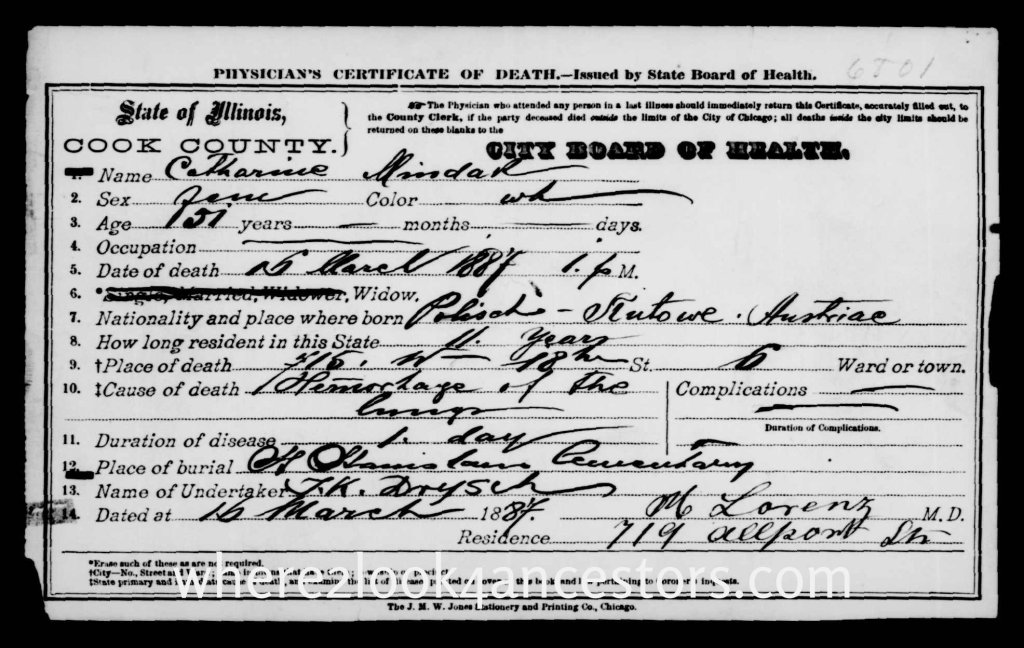 6701
PHYSICIAN'S CERTIFICATE OF DEATH.—Issued by State Board of Health.
State of Illinois,
COOK COUNTY.
☞The Physician who attended any person in a last illness should immediately return this Certificate, accurately filled out, to
the County Clerk, if the party deceased died outside the limits of the City of Chicago; all deaths inside the city limits should be
returned on these blanks to the
CITY BOARD OF HEALTH.
1. Name Catharine Mindak
2. Sex fem Color wh
3. Age 51 years — months — days.
4. Occupation —
5. Date of death 15 March 1887 1. p M.
6. *Single, Married, Widower, Widow.
7. Nationality and place where born Polisch - Rutowe. Austriae
8. How long resident in this State 11. Years
9. †Place of death 715. W — 18th St. 6 Ward or town.
10. ‡Cause of death Hemorhage of the Complications —
lungs
Duration of Complications.
11. Duration of disease 1. day
12. Place of burial St Stanislaus Cementary
13. Name of Undertaker F.K. Drysch
14. Dated at 16 March 1887. M Lorenz M.D.
Residence 719 Allport Str
*Erase such of these as are not required.
†City—No., Street and Ward;
‡State primary and
where2look4ancestors.com
The J. M. W. Jones Stationery and Printing Co., Chicago.